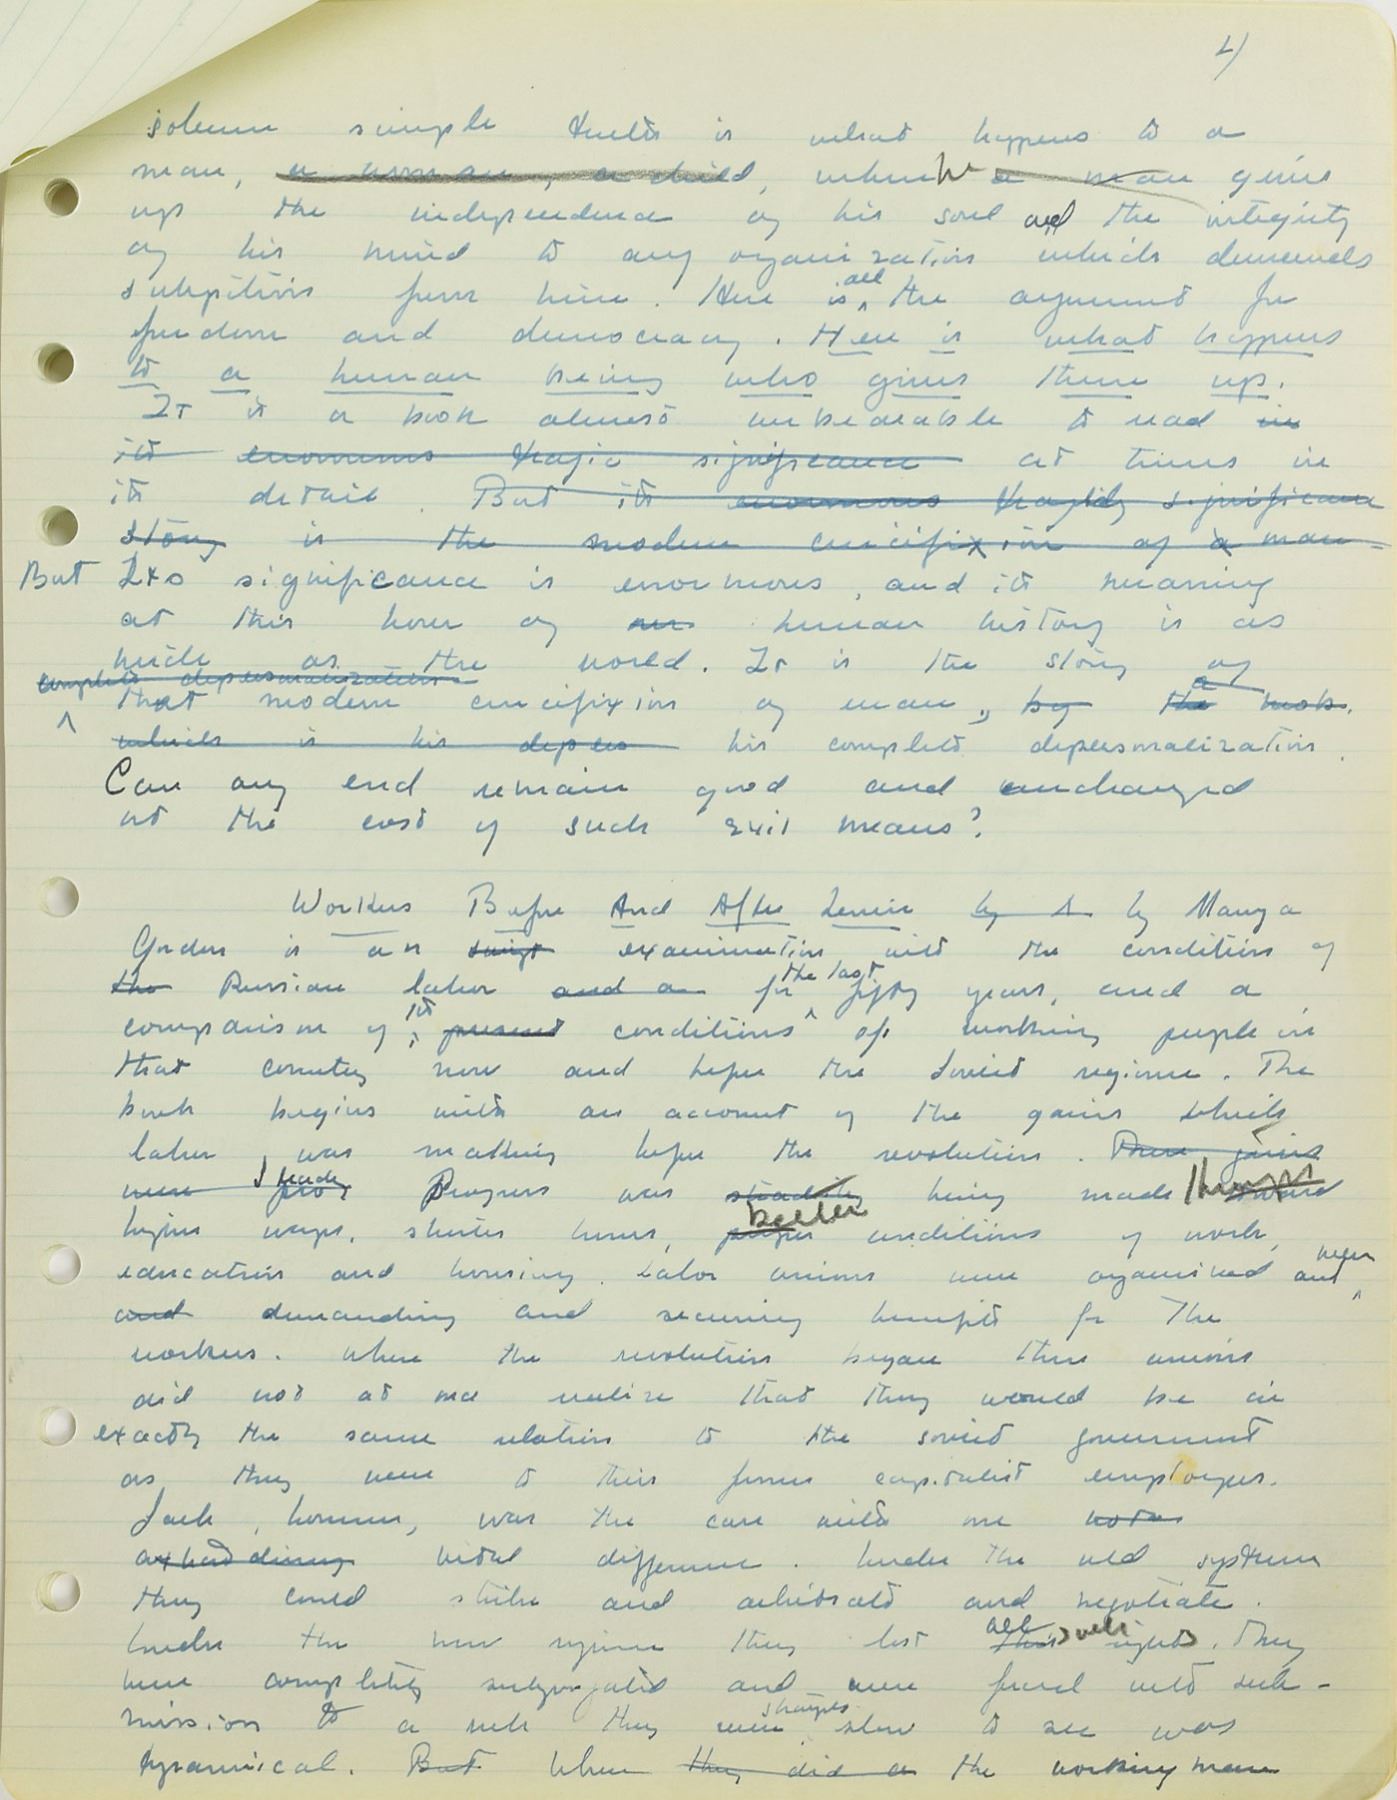 4/
solemn simple truth is what happens to a
man, a woman, a child, when he a man gives
up the independence of his soul and the integrity
of his mind to any organization which demands
subjection from him. Here is all the argument for
freedom and democracy. Here is what happens
to a human being who gives them up.
It is a book almost unbearable to read in
its enormous tragic significance at times in
its detail. But its enormous tragedy significance
story is the modern crucifixion of a man
But Its significance is enormous, and its meaning
at this hour of our human history is as
wide as the world. It is the story of
complete depersonalization
that modern crucifixion of man, by the a mob.
which is his deperso his complete depersonalization.
Can any end remain good and unchanged
at the cost of such evil means?
Workers Before And After Lenin by by Manya
Gordon is an examination into the condition of
the Russian labor and a for the last fifty years, and a
comparison of its present conditions of working people in
that country now and before the Soviet regime. The
book begins with an account of the gains which
labor was making before the revolution. These gains
were steady Progress was steadily being made through toward
higher wages, shorter hours, proper better conditions of work,
education and housing. Labor unions were organized and were
and demanding and securing benefits for the
workers. When the revolution began these unions
did not at once realize that they would be in
exactly the same relation to the soviet government
as they were to their former capitalist employers.
Such, however, was the case with one
vital difference. Under the old system
they could strike and arbitrate and negotiate.
Under the new regime they lost all such rights. They
were completely subjugated and were forced into sub-
mission to a rule they were strangely slow to see was
tyrannical. But when they did a the working man